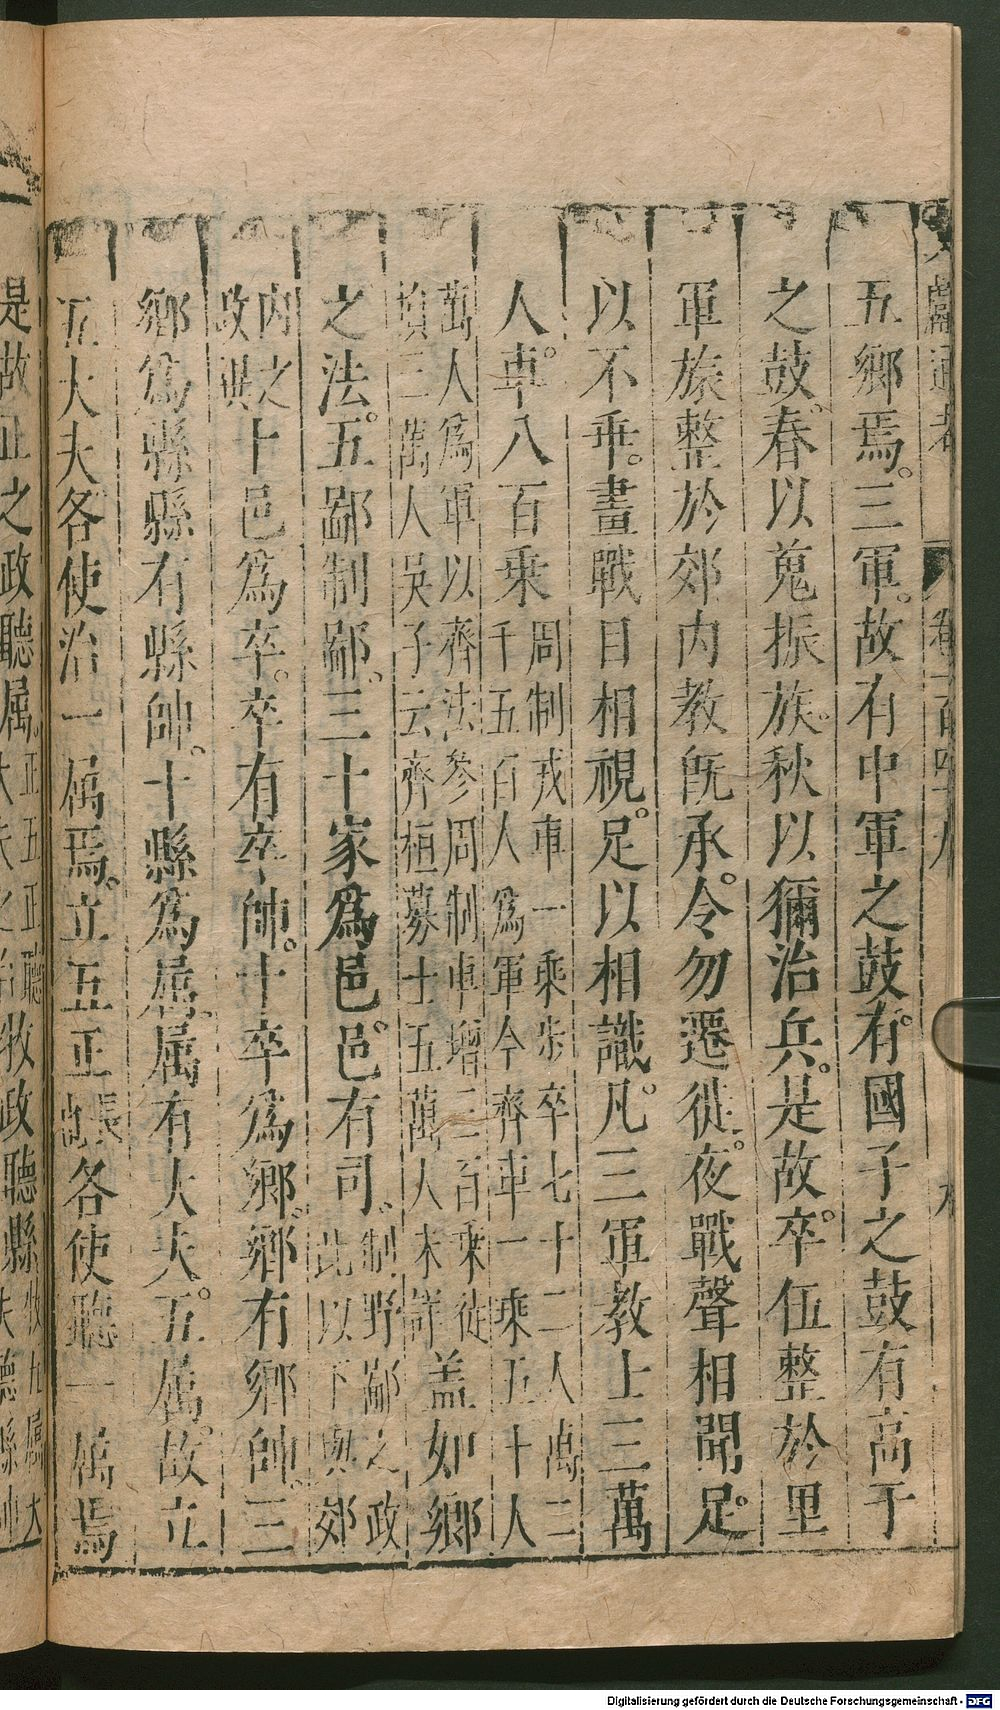 文獻通考 卷一百四十九
五鄉焉三軍故有中軍之鼓有國子之鼓有高子
之鼓春以蒐振旅秋以獮治兵是故卒伍整於里
軍旅整於郊内教既承令勿遷徙夜戰聲相聞足
以不乖晝戰目相視足以相識凡三軍教士三萬
人車八百乘周制戎車一乘步卒七十二人萬二
千五百人為軍今齊車一乘五十人
萬人為軍以齊法參周制車增三百乘徒
損三萬人吳子云齊桓募士五萬人未詳蓋如鄉
之法五鄙制鄙三十家為邑邑有司制野鄙之政
此以下與郊
内之
政異十邑為卒卒有卒帥十卒為鄉鄉有鄉帥三
鄉為縣縣有縣帥十縣為屬屬有大夫五屬故立
五大夫各使治一屬焉立五正長各使聽一屬焉
是故正之政聽屬正五正聽牧政聽縣牧九屬大
Digitalisierung gefördert durch die Deutsche Forschungsgemeinschaft - DFG